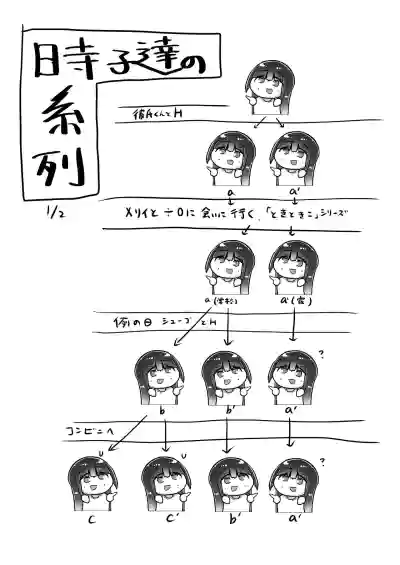 時子達の
系列
1/2
彼氏くんとH
a a'
メリイと÷0に会いに行く、「ときときこ」シリーズ
a a'
例の日 シューブとH
b b' a' ?
コンビニへ
c c' b' a' ?